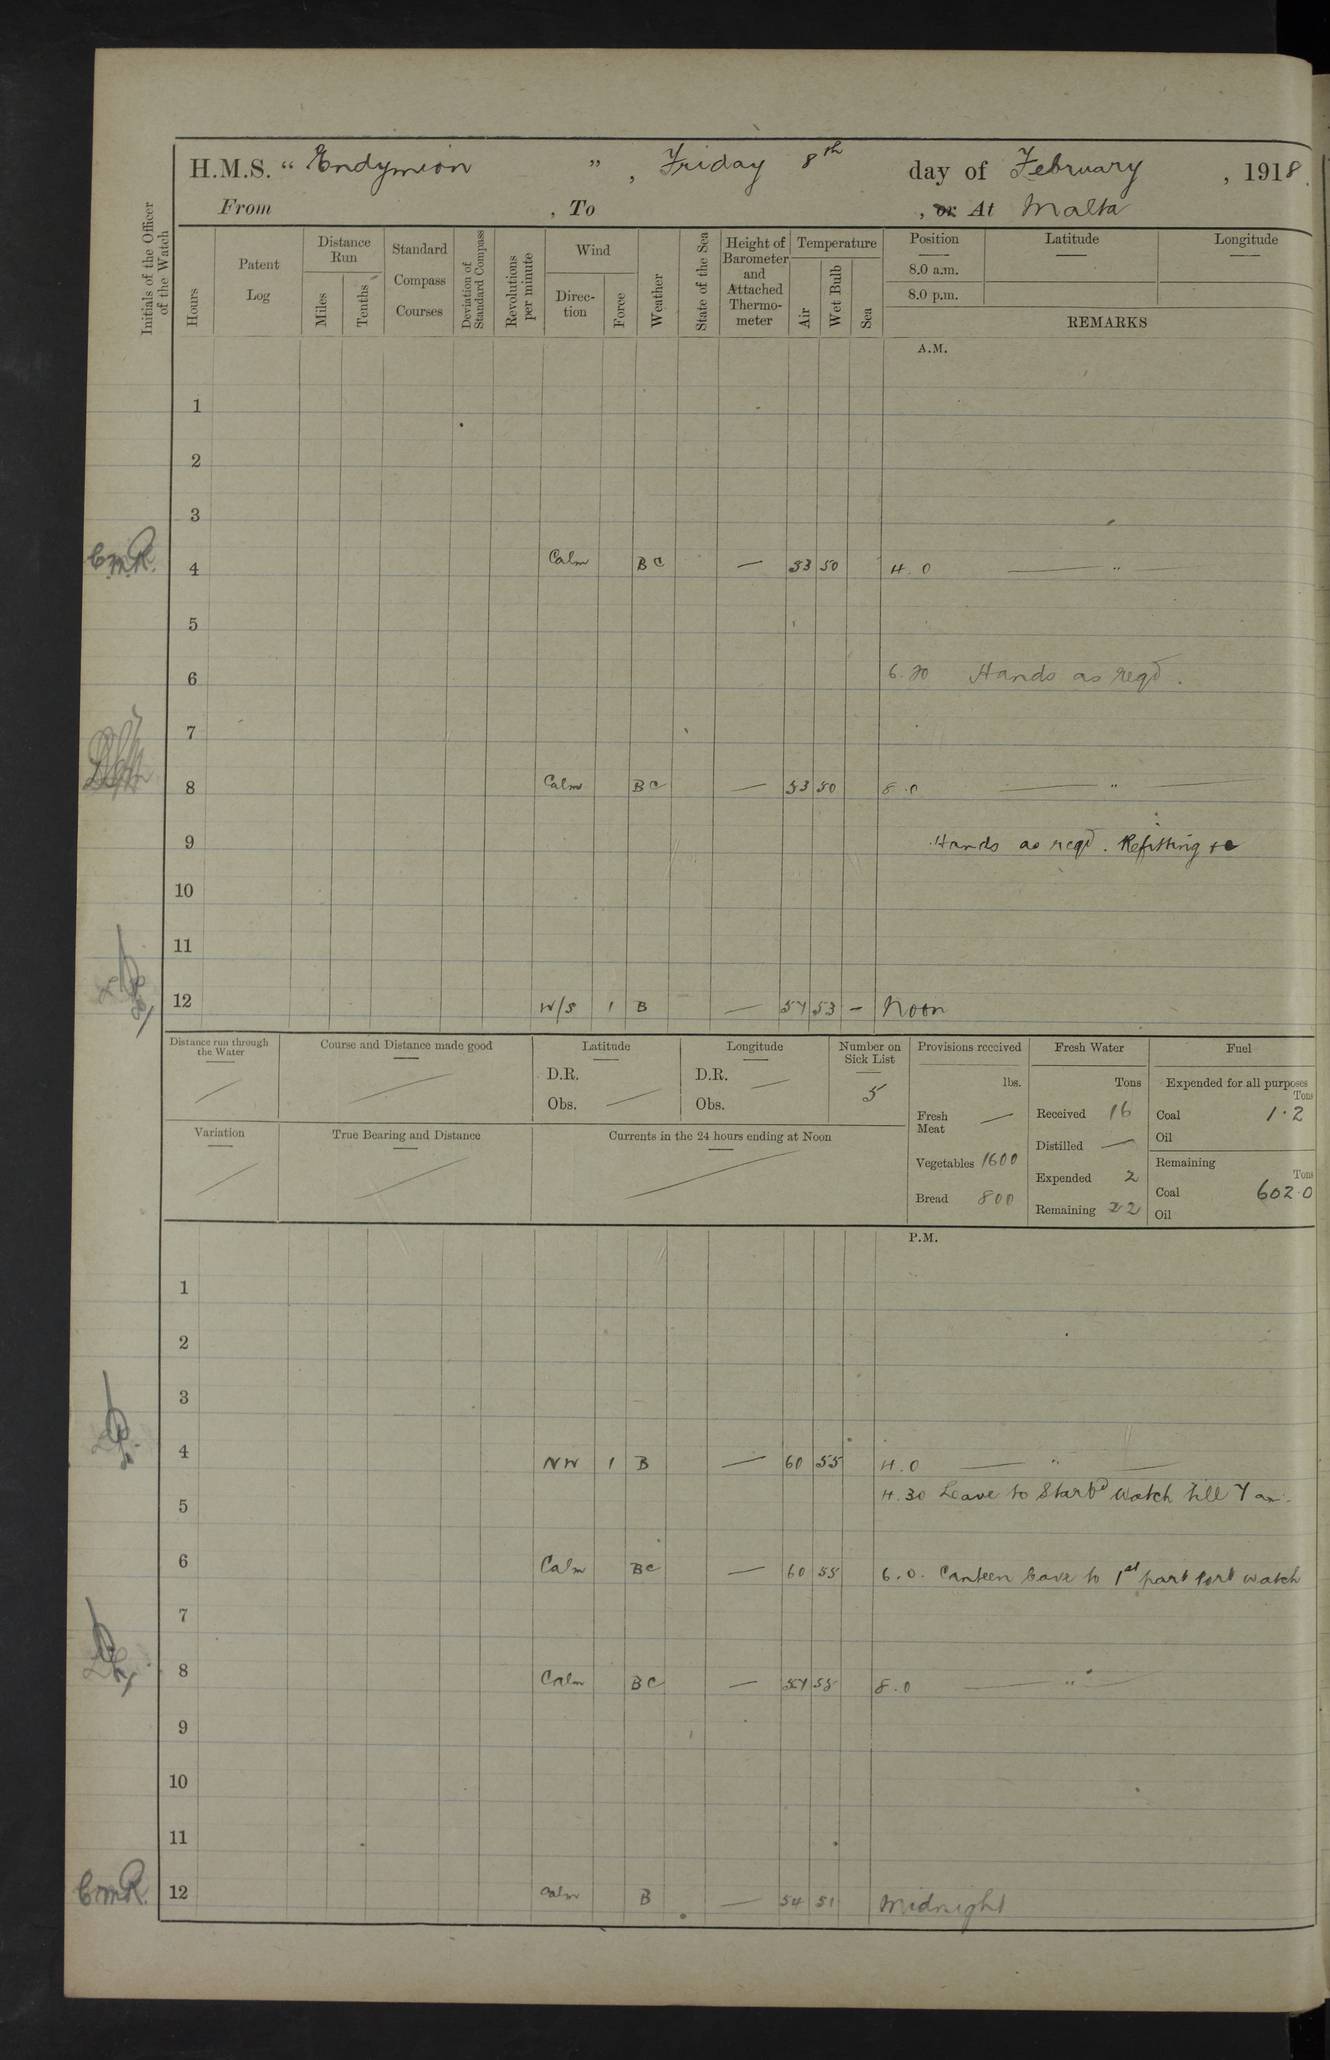 H.M.S. “ Endymion ” , Friday 8th day of February , 1918.
From , To , or At Malta
Initials of the Officer of the Watch
Hours
Patent Log
Distance Run
Miles
Tenths
Standard Compass Courses
Deviation of Standard Compass
Revolutions per minute
Wind
Direc-tion
Force
Weather
State of the Sea
Height of Barometer and Attached Thermo-meter
Temperature
Air
Wet Bulb
Sea
Position Latitude Longitude
8.0 a.m.
8.0 p.m.
REMARKS
A.M.
1
2
3
C.M.R. 4 Calm BC — 53 50 4.0 — " —
5
6 6.20 Hands as reqd.
7
8 Calm BC — 53 50 8.0 — " —
9 Hands as reqd. Refitting &c
10
11
12 W/S 1 B — 57 53 — Noon
Distance run through the Water
Course and Distance made good
Latitude
D.R.
Obs.
Longitude
D.R. —
Obs.
Number on Sick List
5
Variation
True Bearing and Distance
Currents in the 24 hours ending at Noon
Provisions received
lbs.
Fresh Meat —
Vegetables 1600
Bread 800
Fresh Water
Tons
Received 16
Distilled —
Expended 2
Remaining 22
Fuel
Expended for all purposes
Tons
Coal 1.2
Oil
Remaining
Tons
Coal 602.0
Oil
P.M.
1
2
3
4 NW 1 B — 60 55 4.0 — " —
5 4.30 Leave to Starbd Watch till 7 am.
6 Calm BC — 60 55 6.0. Canteen leave to 1st part Port Watch
7
8 Calm BC — 57 55 8.0 — " —
9
10
11
C.M.R. 12 Calm B — 54 51 Midnight